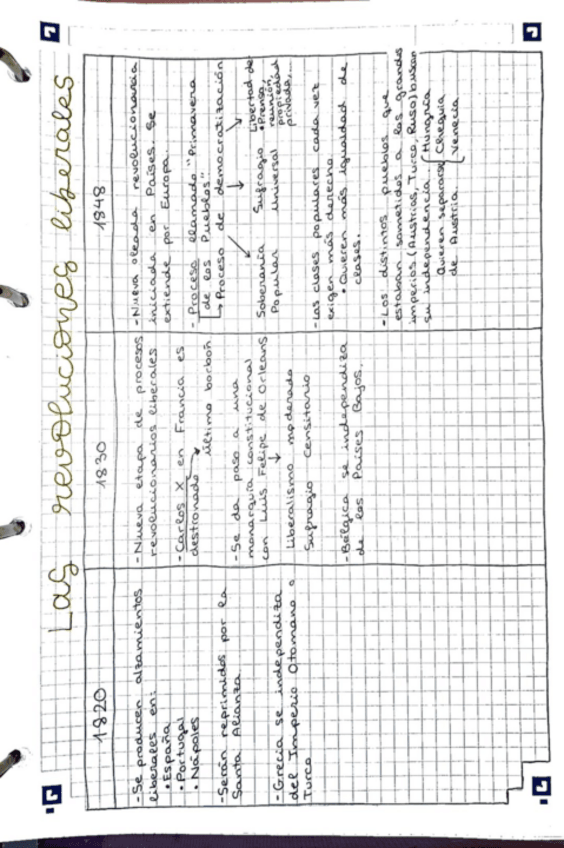 Las revoluciones liberales
1820
- Se producen alzamientos
liberales en:
• España
• Portugal
• Nápoles
- Serán reprimidos por la
Santa Alianza.
- Grecia se independiza
del Imperio Otomano o
Turco
1830
- Nueva etapa de procesos
revolucionarios liberales
- Carlos X en Francia es
destronado
último borbón
- Se da paso a una
monarquía constitucional
con Luis Felipe de Orleans
Liberalismo moderado
Sufragio censitario
- Bélgica se independiza
de los Países Bajos.
1848
- Nueva oleada revolucionaria
iniciada en Países. Se
extiende por Europa.
- Proceso llamado "Primavera
de los Pueblos"
Proceso de democratización
Soberanía
Popular
Sufragio
Universal
Libertad de
• Prensa,
reunión,
propiedad
privada,...
- Las clases populares cada vez
exigen más derecho.
• Quieren más igualdad de
clases.
- Los distintos pueblos que
estaban sometidos a los grandes
imperios (Austrias, Turco, Ruso) buscan
su independencia.
Quieren separarse
de Austria.
Hungría
Chequia
Venecia